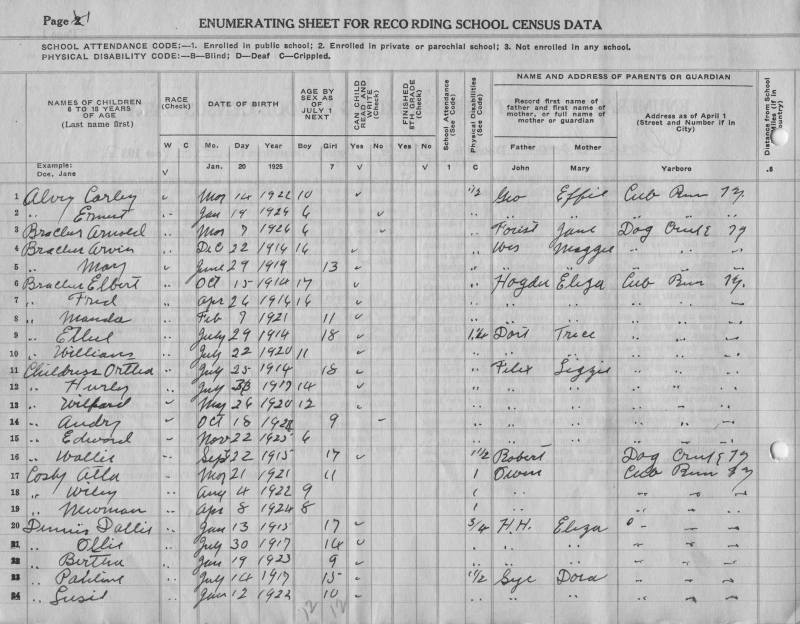 Page 2
ENUMERATING SHEET FOR RECORDING SCHOOL CENSUS DATA
SCHOOL ATTENDANCE CODE:—1. Enrolled in public school; 2. Enrolled in private or parochial school; 3. Not enrolled in any school.
PHYSICAL DISABILITY CODE:—B—Blind; D—Deaf C—Crippled.
NAMES OF CHILDREN 6 TO 18 YEARS OF AGE (Last name first)
RACE (Check)
W C
DATE OF BIRTH
Mo. Day Year
AGE BY SEX AS OF JULY 1 NEXT
Boy Girl
CAN CHILD READ AND WRITE (Check)
Yes No
FINISHED 8TH GRADE (Check)
Yes No
School Attendance (See Code)
Physical Disabilities (See Code)
NAME AND ADDRESS OF PARENTS OR GUARDIAN
Record first name of father and first name of mother, or full name of mother or guardian
Father Mother
Address as of April 1 (Street and Number if in City)
Distance from School Miles (if in country)
Example: Doe, Jane V Jan. 20 1925 7 V V 1 C John Mary Yarboro .5
1 Alvey Corley Mar 14 1922 10 1/2 Geo Effie Cub Run Ky.
2 " Ernest Jan 19 1926 6 " " " " "
3 Bracher Arnold Mar 7 1926 6 " Forist Jane Dog Creek Ky
4 Bracher Arvin Dec 22 1916 16 " Wes Maggie " " "
5 " May June 29 1919 13 " " " " " "
6 Bracher Elbert Oct 15 1914 17 " Hogder Eliza Cub Run Ky.
7 " Fred Apr 26 1916 16 " " " " " "
8 " Manda Feb 7 1921 11 " " " " " "
9 " Ethel July 29 1914 18 1 1/4 Dort Trece " " "
10 " Williams July 22 1920 11 " " " " " "
11 Childress Orthea July 25 1914 18 " Felix Lizzie " " "
12 " Hurley July 1917 14 " " " " " "
13 " Wilford May 26 1920 12 " " " " " "
14 " Audry Oct 18 9 " " " " " "
15 " Edward Nov 22 1925 6 " " " " " "
16 " Wallis Sept 22 1915 17 1 1/2 Robert Dog Creek Ky
17 Cosby Alla May 21 1921 11 1 Owen Cub Run Ky
18 " Wiley Aug 4 1922 9 1 " " " "
19 " Newman Apr 8 1924 8 1 " " " "
20 Dennis Dallis Jan 13 1915 17 3/4 H.H. Eliza " " "
21 " Ollie July 30 1917 14 " " " " " "
22 " Bertha Jan 19 1923 9 " " " " " "
23 " Pauline July 14 1917 15 1 1/2 Gye Dora " " "
24 " Susie Jan 12 1922 10 " " " " " "
12 12